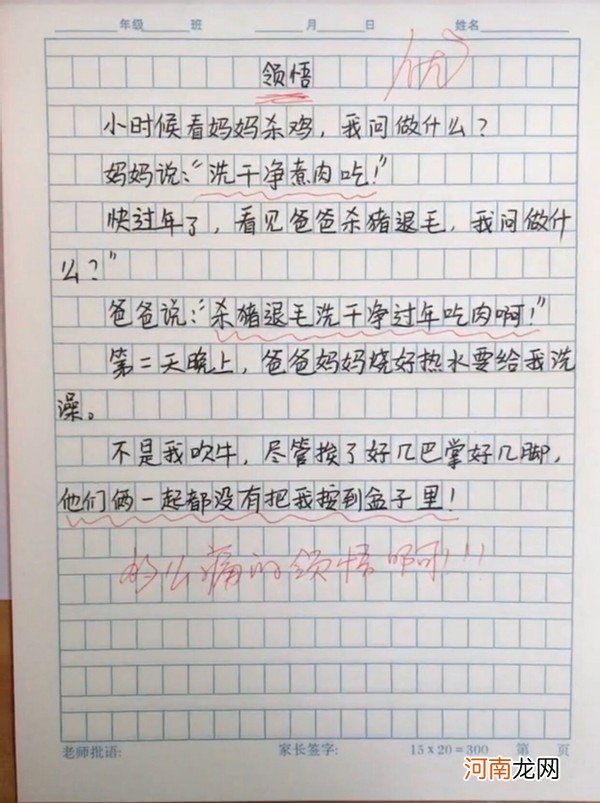 年级 班 月 日 姓名
领悟
优
小时候看妈妈杀鸡，我问做什么？
妈妈说："洗干净煮肉吃！"
快过年了，看见爸爸杀猪退毛，我问做什
么？"
爸爸说："杀猪退毛洗干净过年吃肉啊！"
第二天晚上，爸爸妈妈烧好热水要给我洗
澡。
不是我吹牛，尽管挨了好几巴掌好几脚，
他们俩一起都没有把我按到盆子里！
多么痛的领悟啊！！！
老师批语: 家长签字: 15×20=300 第 页
河南龙网